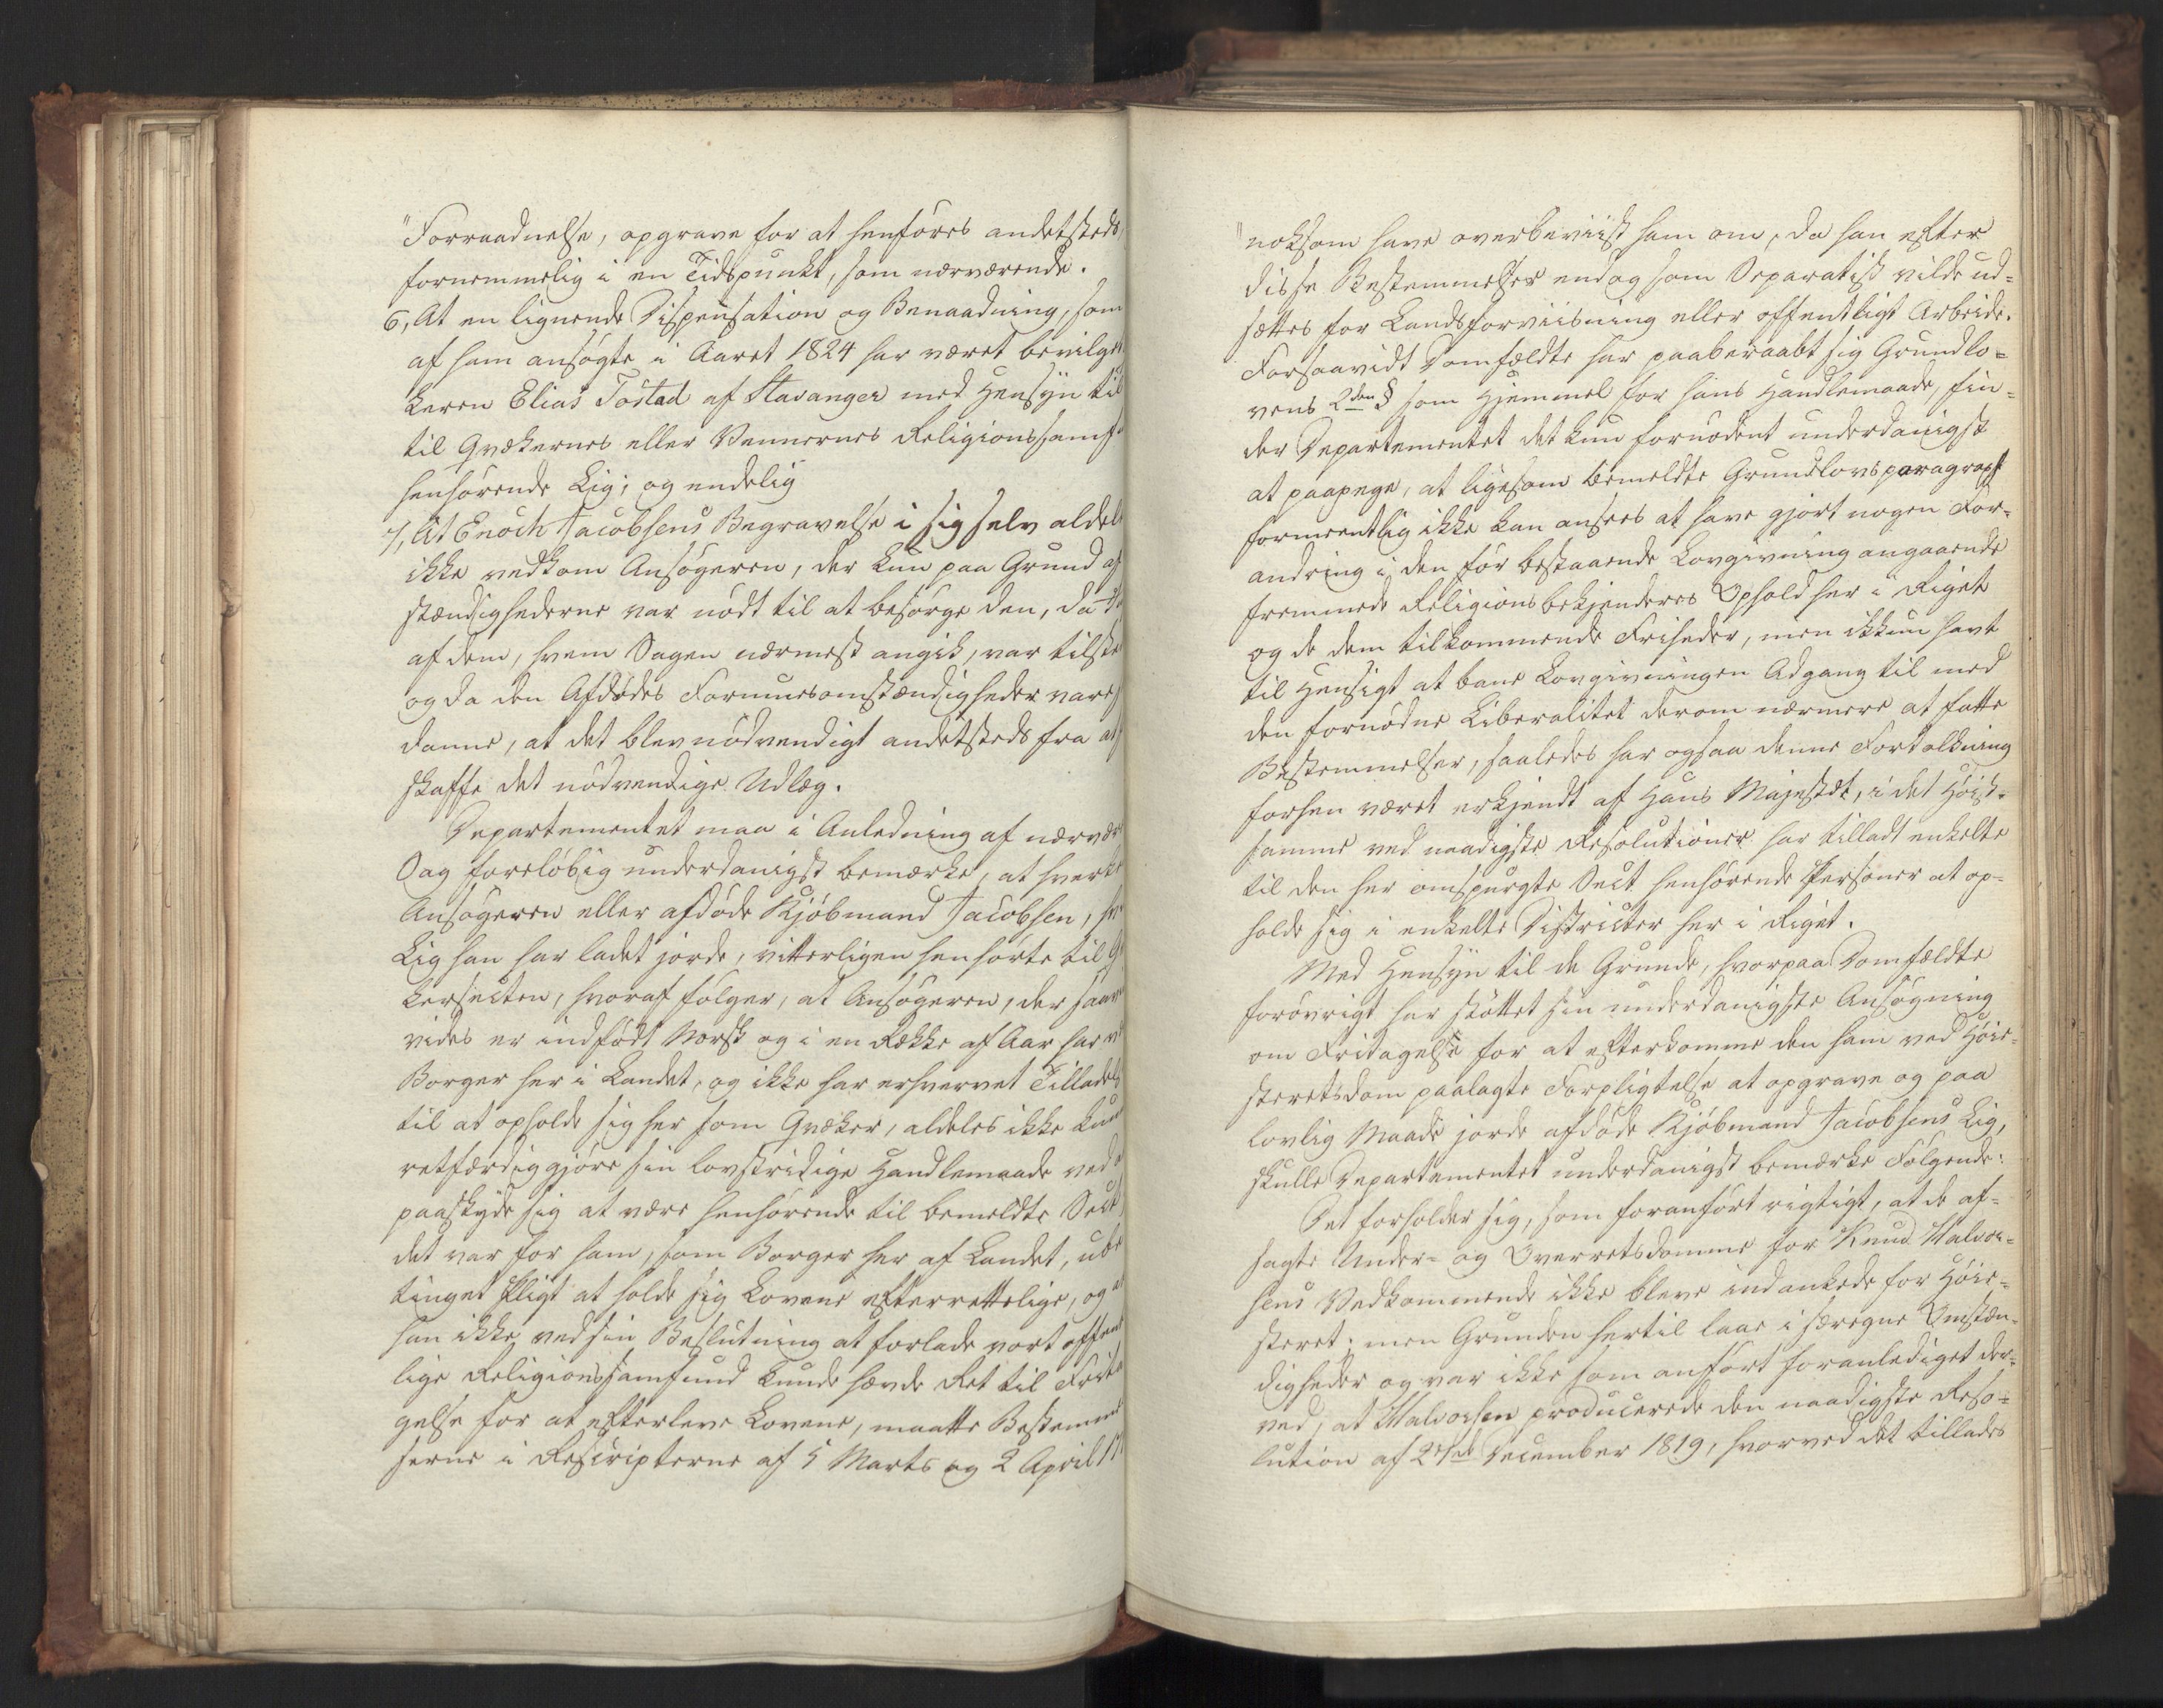 "Forraadnelse, opgrave for at henføres andetsteds,
fornemmelig i en Tidspunkt, som nærværende.
6, At en lignende Dispensation og Benaadning, som
af ham ansøgte i Aaret 1824 har været bevilget
keren Elias Tostad af Stavanger med Hensyn til
til Qvækernes eller Vennernes Religionssamf
henhørende Lig; og endelig
7, At Enoch Jacobsens Begravelse i sig selv aldel
ikke vedkom Ansøgeren, der kun paa Grund af
stændighederne var nødt til at besørge den, da
af dem, hvem Sagen nærmest angik, var tilste
og da den Afdødes Formuesomstændigheder vare
danne, at det blev nødvendigt andetsteds fra at
skaffe det nødvendige Udlæg.
Departementet maa i Anledning af nærvær
Sag foreløbig underdanigst bemærke, at hverke
Ansøgeren eller afdøde Kjøbmand Jacobsen, hv
Lig han har ladet jorde, vitterligen henhørte til Q
kersecten, hvoraf følger, at Ansøgeren, der saav
vides er indfødt Norsk og i en Række af Aar har v
Borger her i Landet, og ikke har erhvervet Tilladels
til at opholde sig her som Qvæker, aldeles ikke kun
retfærdiggjøre sin lovstridige Handlemaade ved
paaskyde sig at være henhørende til bemeldte Sect
det var for ham, som Borger her af Landet, ube
tinget Pligt at holde sig Lovene efterrettelige, og
han ikke ved sin Beslutning at forlade vort offent
lige Religionssamfund kunde hævde Ret til Frita
gelse for at efterleve Lovene, maatte Bestemmel
serne i Rescripterne af 5 Marts og 2 April 17
"noksom have overbeviist ham om, da han efter
disse Bestemmelser endog som Separatist vilde ud-
sættes for Landsforviisning eller offentligt Arbeide.
Forsaavidt Domfældte har paaberaabt sig Grundlo-
vens 2den § som Hjemmel for hans Handlemaade, fin-
der Departementet det kun fornødent underdanigst
at paapege, at ligesom bemeldte Grundlovsparagraph
formeentlig ikke kan ansees at have gjort nogen For-
andring i den før bestaaende Lovgivning angaaende
fremmede Religionsbekjenderes Ophold her i Riget
og de dem tilkommende Friheder, men ikkun havt
til Hensigt at bane Lovgivningen Adgang til med
den fornødne Liberalitet derom nærmere at fatte
Bestemmelser, saaledes har ogsaa denne Fortolkning
forhen været erkjendt af Hans Majestæt, i det Høist-
samme ved naadigste Resolutioner har tilladt enkelte
til den her omspurgte Sect henhørende Personer at op-
holde sig i enkelte Districter her i Riget.
Med Hensyn til de Grunde, hvorpaa Domfældte
forøvrigt har støttet sin underdanigste Ansøgning
om Fritagelse for at efterkomme den ham ved Høie-
steretsdom paalagte Forpligtelse at opgrave og paa
lovlig Maade jorde afdøde Kjøbmand Jacobsens Lig,
skulle Departementet underdanigst bemærke Følgende:
Det forholder sig, som foranført rigtigt, at de af-
sagte Under- og Overretsdomme for Knud Halvor-
sens Vedkommende ikke bleve indankede for Høie-
steret; men Grunden hertil laae i særegne Omstæn-
digheder og var ikke som anført foranlediget der-
ved, at Halvorsen producerede den naadigste Reso-
lution af 21de December 1819, hvorved det tillades